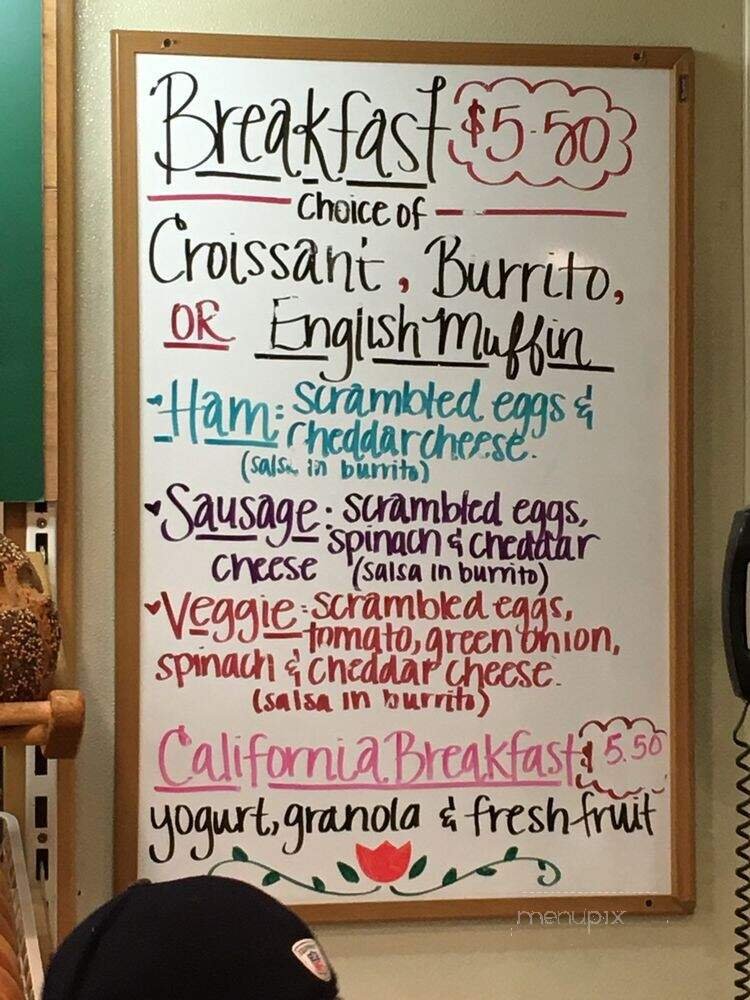 Breakfast $5.50
Choice of
Croissant, Burrito,
OR English Muffin
Ham: scrambled eggs &
cheddar cheese.
(salsa in burrito)
Sausage: scrambled eggs,
spinach & cheddar
cheese (salsa in burrito)
Veggie: scrambled eggs,
tomato, green onion,
spinach & cheddar cheese.
(salsa in burrito)
California Breakfast $5.50
yogurt, granola & fresh fruit
menupix